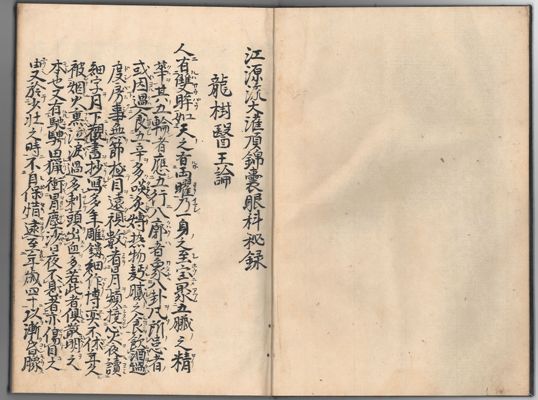 江源流大灌頂錦囊眼科秘録
龍樹醫王論
人有雙眸如天之有両曜乃一身之至宝累五臓之精
華其五輪者應五行八廓者象八卦凡所忌者
或因過食五辛多啖炙煿執物麪膩之食飲酒過
度房事無節極目遠視数看日月頻撓心火夜讀
細字月下觀書抄冩多年雕鏤細作博奕不休久
被烟火泣涙過多刺頭出血多若此者俱散明之
本也又有馳騁田獵衝冐塵沙日夜不息者亦傷目之
由又於少壮之時不自保惜逮至年歳四十以漸昏矇